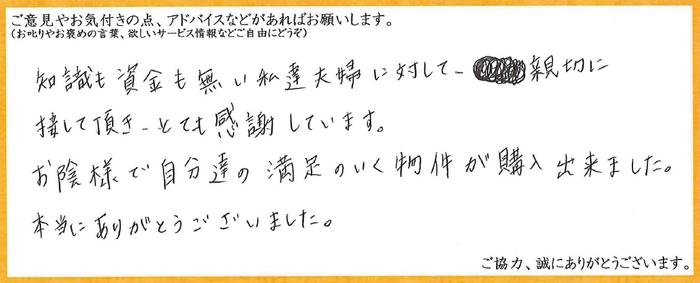 ご意見やお気付きの点、アドバイスなどがあればお願いします。
(お叱りやお褒めの言葉、欲しいサービス情報などご自由にどうぞ)
知識も資金も無い私達夫婦に対して、親切に
接して頂き、とても感謝しています。
お陰様で自分達の満足のいく物件が購入出来ました。
本当にありがとうございました。
ご協力、誠にありがとうございます。